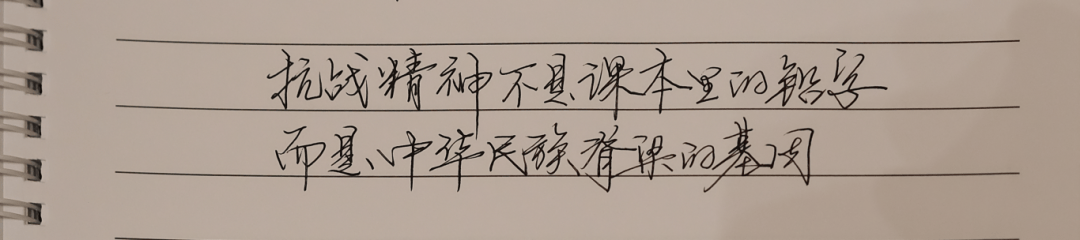 抗战精神不是课本里的铅字
而是中华民族脊梁的基因